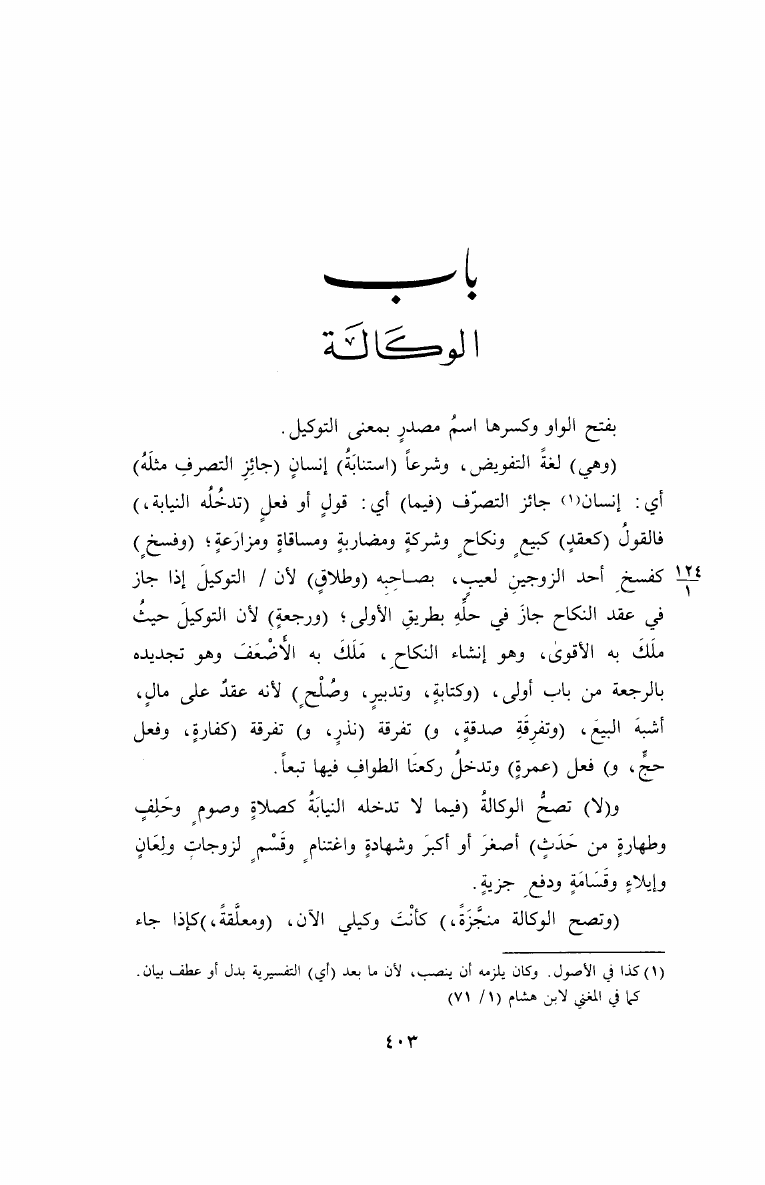 باب
الوكالة
بفتح الواو وكسرها اسمُ مصدرٍ بمعنى التوكيل.
(وهي) لغةً التفويض، وشرعاً (استنابَةُ) إنسانٍ (جائزِ التصرفِ مثلَهُ)
أي: إنسان(١) جائز التصرّف (فيما) أي: قولٍ أو فعلٍ (تدخُلُه النيابة،)
فالقولُ (كعقدٍ) كبيعٍ ونكاحٍ وشركةٍ ومضاربةٍ ومساقاةٍ ومزارَعةٍ؛ (وفسخٍ)
كفسخِ أحد الزوجينِ لعيبٍ، بصاحبِه (وطلاقٍ) لأن / التوكيلَ إذا جاز ١٢٤/١
في عقد النكاح جازَ في حلِّهِ بطريقِ الأولى؛ (ورجعةٍ) لأن التوكيل حيثُ
ملَكَ به الأقوىٰ، وهو إنشاء النكاحِ، مَلَكَ به الأَضْعَفَ وهو تجديده
بالرجعة من باب أولى، (وكتابةٍ، وتدبيرٍ، وصُلْحٍ) لأنه عقدٌ على مالٍ،
أشبهَ البيعَ، (وتفرِقَةِ صدقةٍ، و) تفرقة (نذرٍ، و) تفرقة (كفارةٍ، وفعل
حجٍّ، و) فعل (عمرةٍ) وتدخلُ ركعتَا الطواف فيها تبعاً.
و(لا) تصحُّ الوكالةُ (فيما لا تدخله النيابَةُ كصلاةٍ وصومٍ وحَلِفٍ
وطهارةٍ من حَدَثٍ) أصغرَ أو أكبرَ وشهادةٍ واغتنامٍ وقَسْمٍ لزوجاتٍ ولِعَانٍ
وإيلاءٍ وقَسَامَةٍ ودفعِ جزيةٍ.
(وتصح الوكالة منجَّزةً،) كأنْتَ وكيلي الآن، (ومعلَّقةً،)كإذا جاء
(١) كذا في الأصول. وكان يلزمه أن ينصب، لأن ما بعد (أي) التفسيرية بدل أو عطف بيان.
كما في المغني لابن هشام (١/ ٧١)
٤٠٣